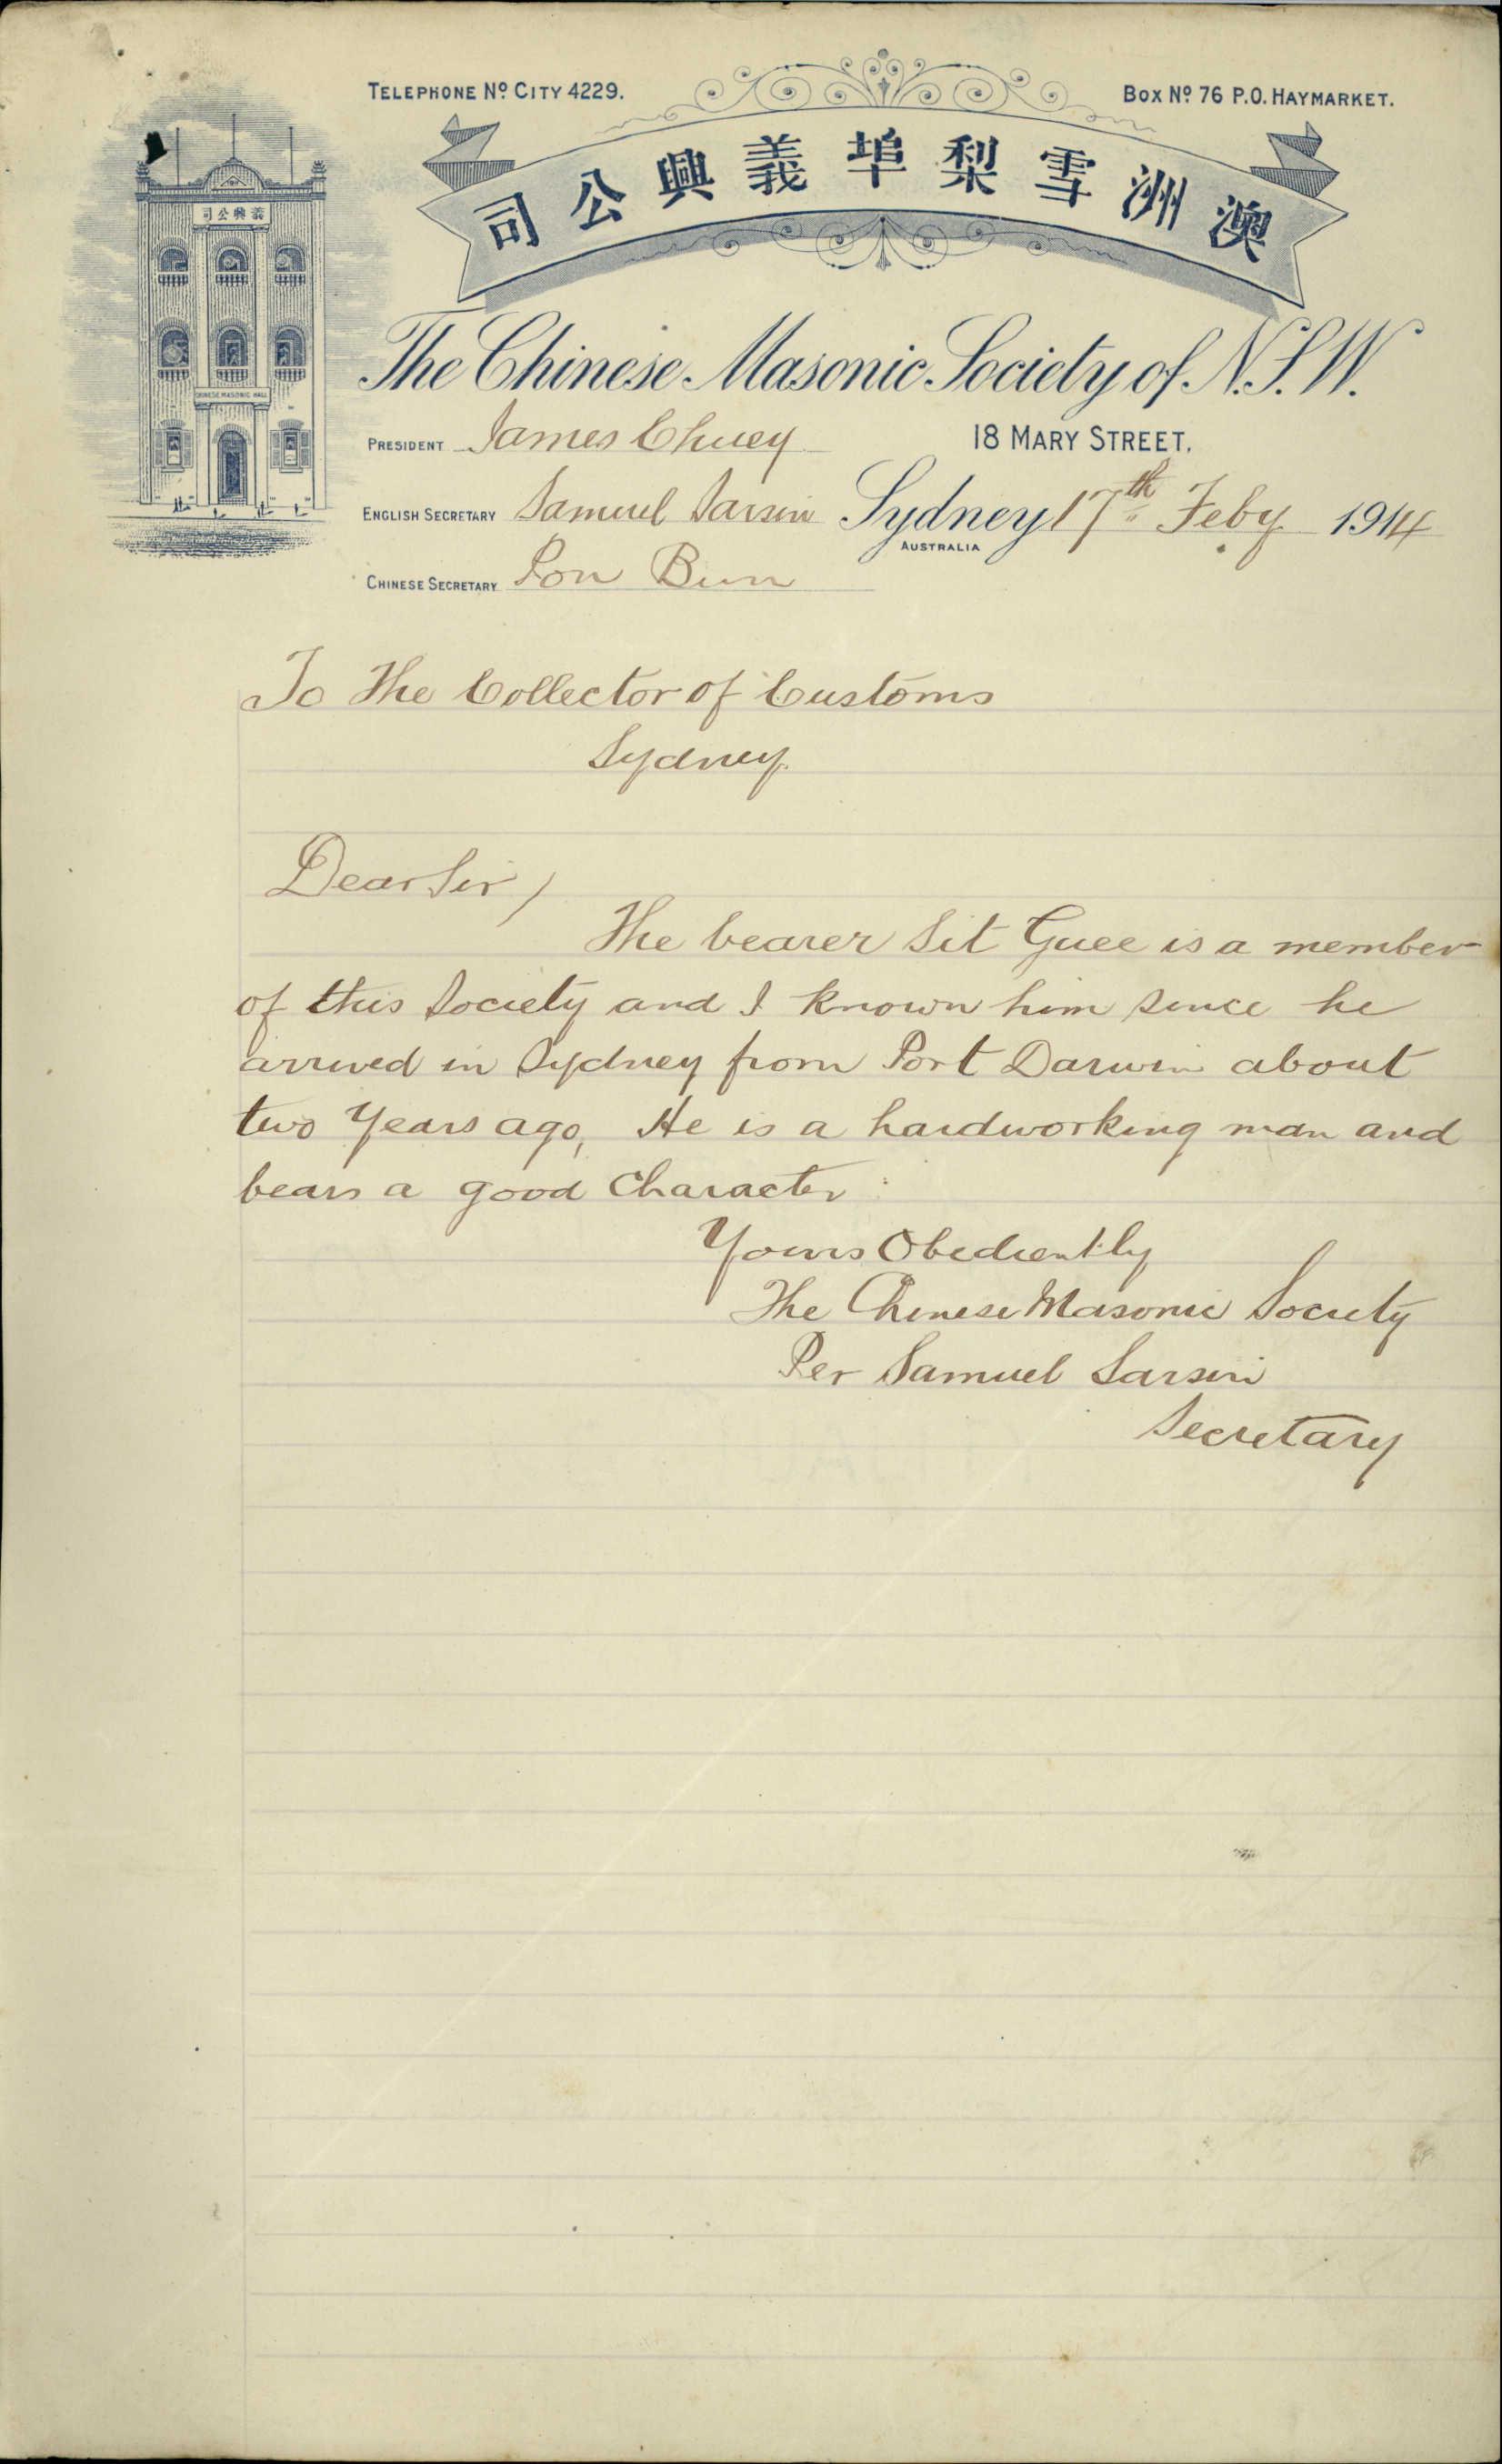 TELEPHONE Nº CITY 4229.
BOX Nº 76 P.O. HAYMARKET.
澳洲雪梨埠義興公司
義興公司
CHINESE MASONIC HALL
The Chinese Masonic Society of N.S.W.
PRESIDENT James Chuey
18 MARY STREET,
ENGLISH SECRETARY Samuel Sarsin
Sydney 17th Feby 1914
AUSTRALIA
CHINESE SECRETARY Pon Bun
To The Collector of Customs
Sydney.
Dear Sir,
The bearer Sit Guee is a member
of this Society and I known him since he
arrived in Sydney from Port Darwin about
two Years ago, He is a hardworking man and
bears a good Character
Yours Obediently
The Chinese Masonic Society
Per Samuel Sarsin
Secretary